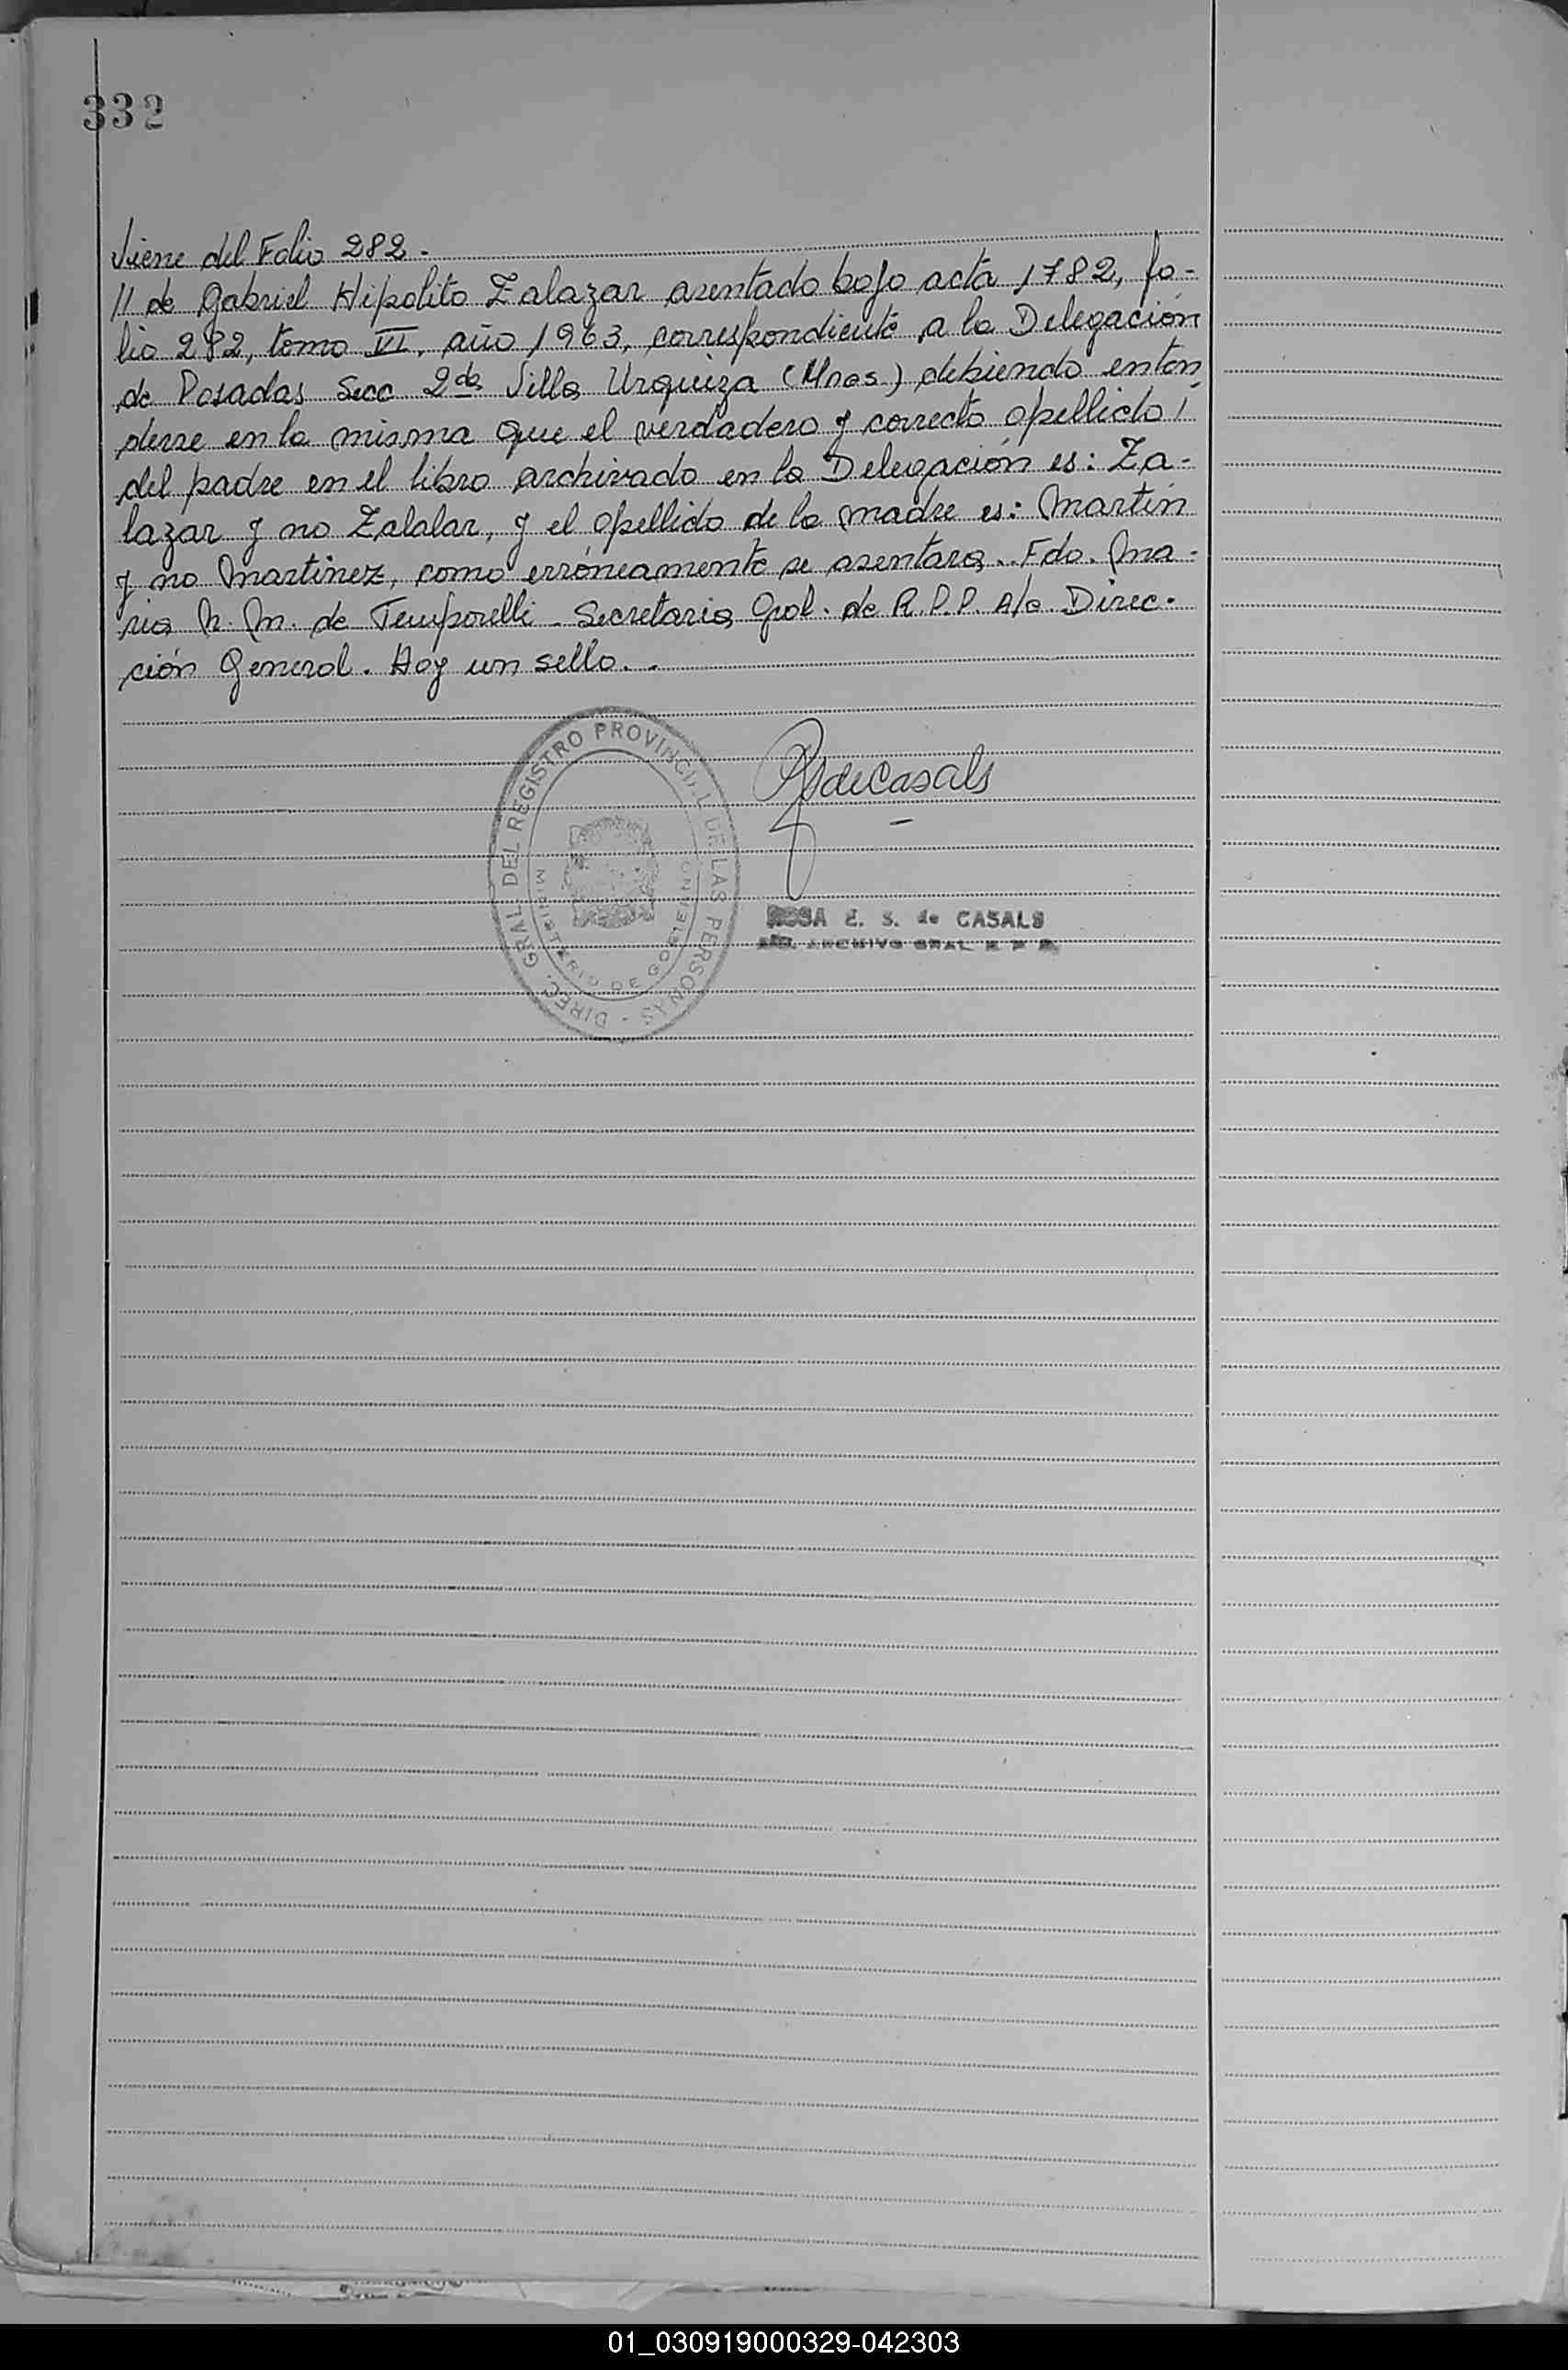 332
Viene del Folio 282.-
// de Gabriel Hipolito Zalazar asentado bajo acta 1782, fo-
lio 282, tomo VI, año 1963, correspondiente a la Delegación
de Posadas Secc 2da Villa Urquiza (Mnes) debiendo enten
derse en la misma que el verdadero y correcto apellido
del padre en el libro archivado en la Delegación es: Za-
lazar y no Zalalar, y el apellido de la madre es: Martin
y no Martinez, como erróneamente se asentara.. Fdo. Ma-
ria N. M. de Temporelli - Secretaria Gral. de R.P.P. A/c Direc-
ción General. Hay un sello. .-
DIREC. GRAL. DEL REGISTRO PROVINCIAL DE LAS PERSONAS -
MINISTERIO DE GOBIERNO
deCasals
ROSA E. S. de CASALS
ARCHIVO GRAL R P P.
01_030919000329-042303